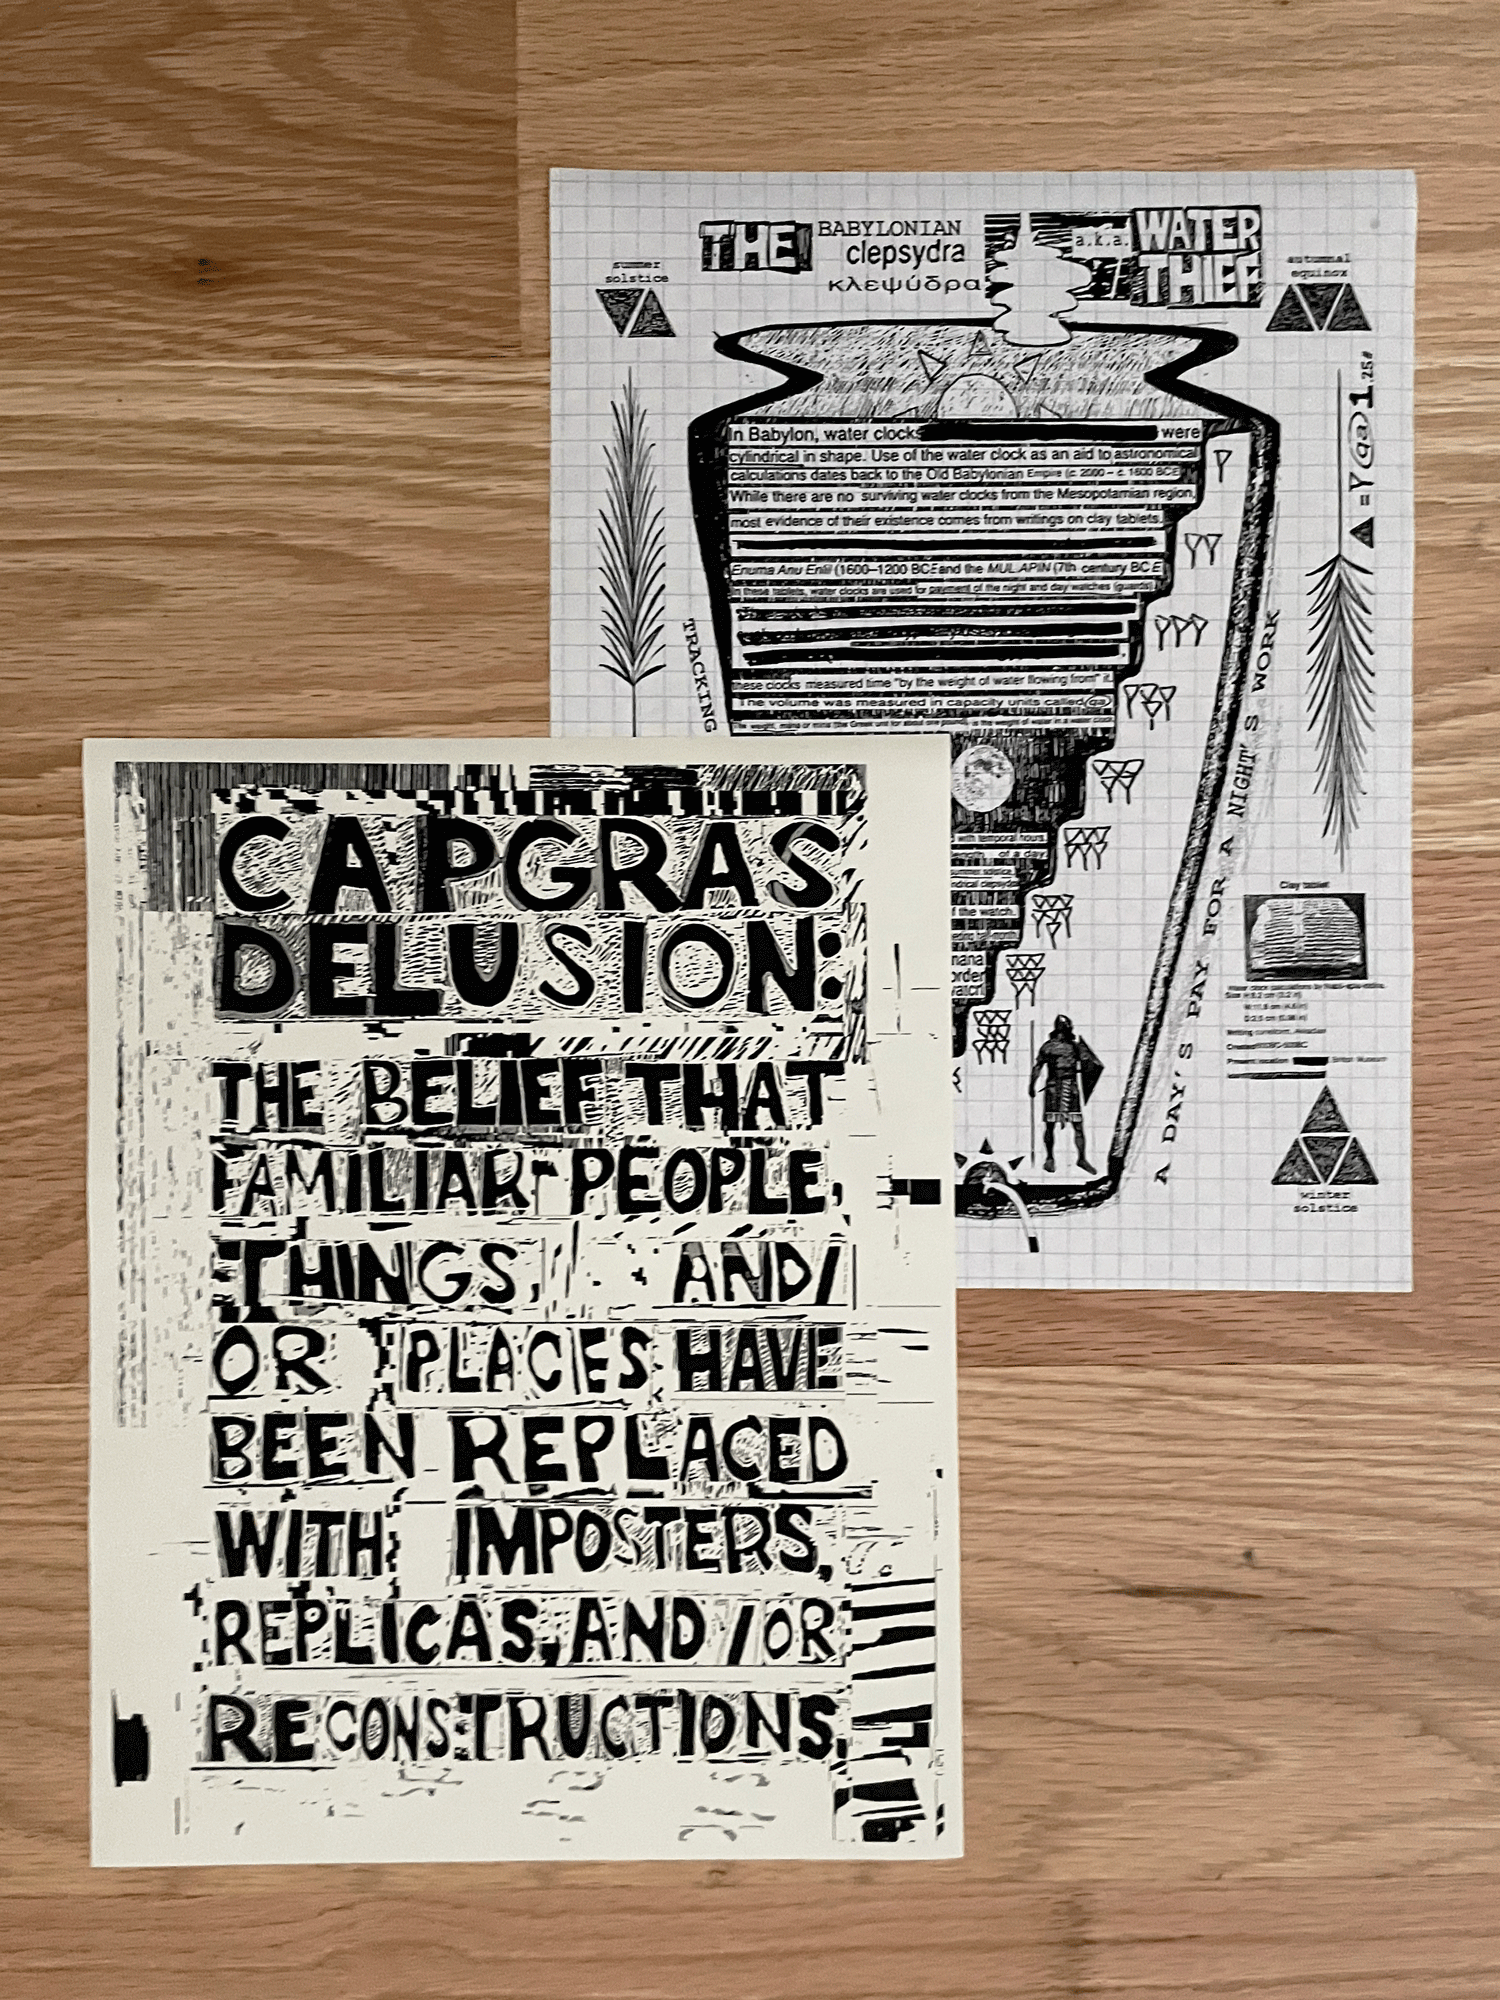 THE BABYLONIAN clepsydra κλεψύδρα a.k.a. WATER THIEF
summer solstice
autumnal equinox
In Babylon, water clocks were
cylindrical in shape. Use of the water clock as an aid to astronomical
calculations dates back to the Old Babylonian Empire (c. 2000 – c. 1600 BCE
While there are no surviving water clocks from the Mesopotamian region,
most evidence of their existence comes from writings on clay tablets.
Enuma Anu Enlil (1600–1200 BCE and the MUL.APIN (7th century BCE
In these tablets, water clocks are used for payment of the night and day watches (guards)
these clocks measured time "by the weight of water flowing from" it.
The volume was measured in capacity units called (qa)
with temporal hours.
of a day
of the watch.
mana
order
TRACKING
A DAY'S PAY FOR A NIGHT'S WORK
▲ = Y (qa) 1.25#
Clay tablet
winter solstice
CAPGRAS
DELUSION:
THE BELIEF THAT
FAMILIAR PEOPLE,
THINGS, AND/
OR PLACES HAVE
BEEN REPLACED
WITH IMPOSTERS,
REPLICAS, AND/OR
RECONSTRUCTIONS.